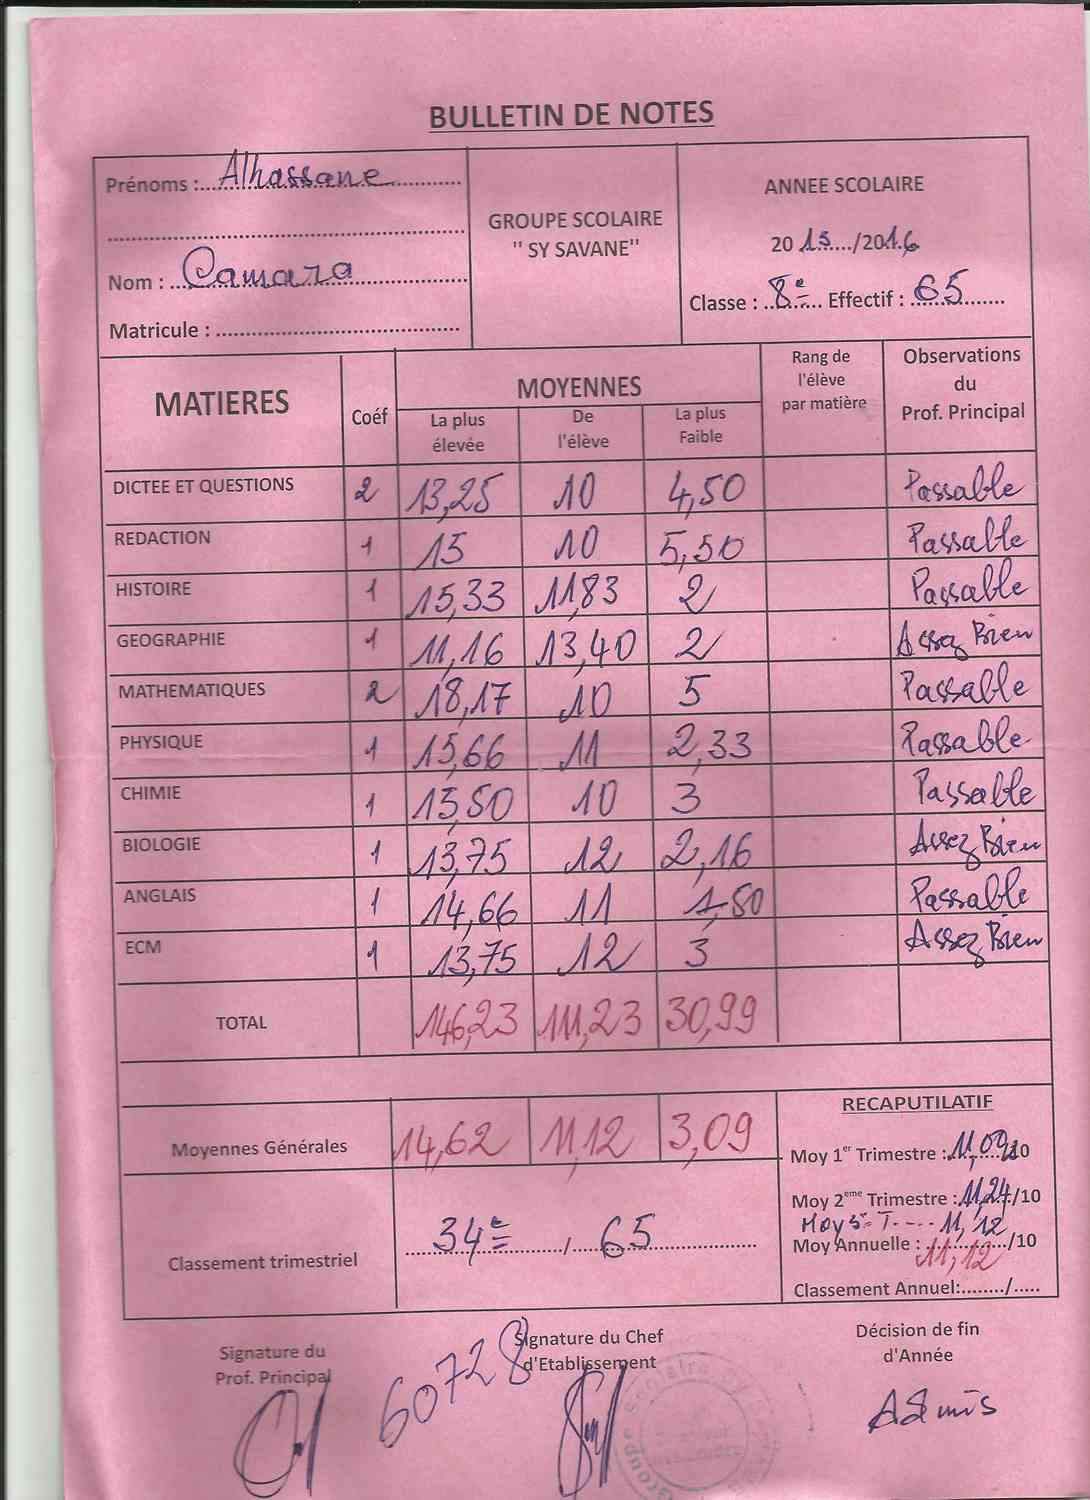 BULLETIN DE NOTES
Prénoms : Alhassane
Nom : Camara
Matricule :
GROUPE SCOLAIRE
" SY SAVANE"
ANNEE SCOLAIRE
2015/2016
Classe : 8e Effectif : 65
MATIERES Coéf MOYENNES Rang de l'élève par matière Observations du Prof. Principal
La plus élevée De l'élève La plus Faible
DICTEE ET QUESTIONS 2 13,25 10 4,50 Passable
REDACTION 1 15 10 5,50 Passable
HISTOIRE 1 15,33 11,83 2 Passable
GEOGRAPHIE 1 11,16 13,40 2 Assez Bien
MATHEMATIQUES 2 18,17 10 5 Passable
PHYSIQUE 1 15,66 11 2,33 Passable
CHIMIE 1 15,50 10 3 Passable
BIOLOGIE 1 13,75 12 2,16 Assez Bien
ANGLAIS 1 14,66 11 1,50 Passable
ECM 1 13,75 12 3 Assez Bien
TOTAL 146,23 111,23 30,99
Moyennes Générales 14,62 11,12 3,09
Classement trimestriel 34e / 65
RECAPUTILATIF
Moy 1er Trimestre : 11,09/10
Moy 2eme Trimestre : 11,24/10
Moy 3e T---- 11,12
Moy Annuelle : 11,12/10
Classement Annuel:......../.....
Signature du
Prof. Principal
60728
Signature du Chef
d'Etablissement
Décision de fin
d'Année
Admis